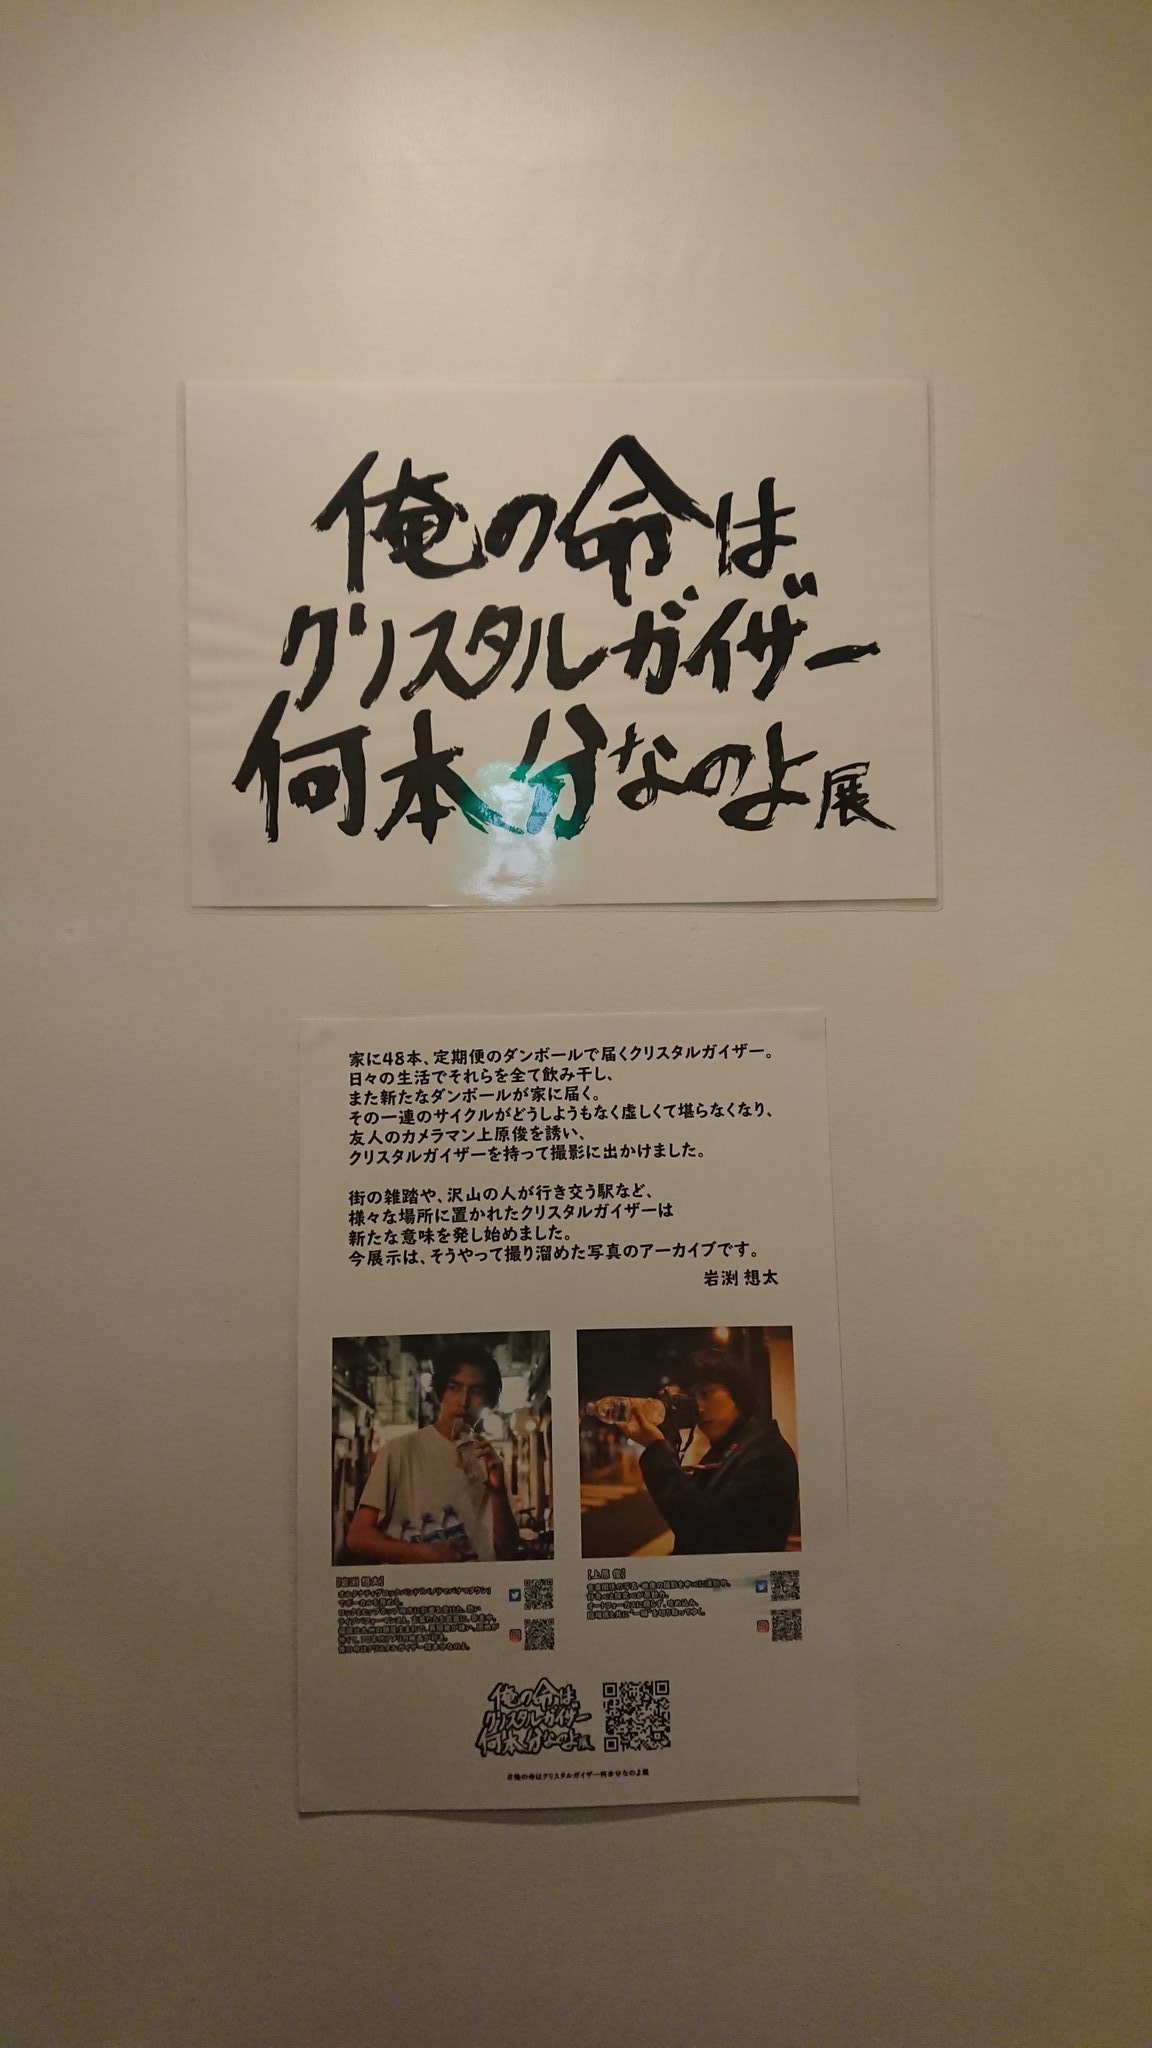 俺の命は
クリスタルガイザー
何本分なのよ展
家に48本、定期便のダンボールで届くクリスタルガイザー。
日々の生活でそれらを全て飲み干し、
また新たなダンボールが家に届く。
その一連のサイクルがどうしようもなく虚しくて堪らなくなり、
友人のカメラマン上原俊を誘い、
クリスタルガイザーを持って撮影に出かけました。
街の雑踏や、沢山の人が行き交う駅など、
様々な場所に置かれたクリスタルガイザーは
新たな意味を発し始めました。
今展示は、そうやって撮り溜めた写真のアーカイブです。
岩渕 想太
[岩渕 想太]
オルタナティブロックバンド「パノラマパナマタウン」
でボーカルを務める。
俺の命はクリスタルガイザー何本分なのよ。
[上原 俊]
俺の命は
クリスタルガイザー
何本分なのよ展
#俺の命はクリスタルガイザー何本分なのよ展